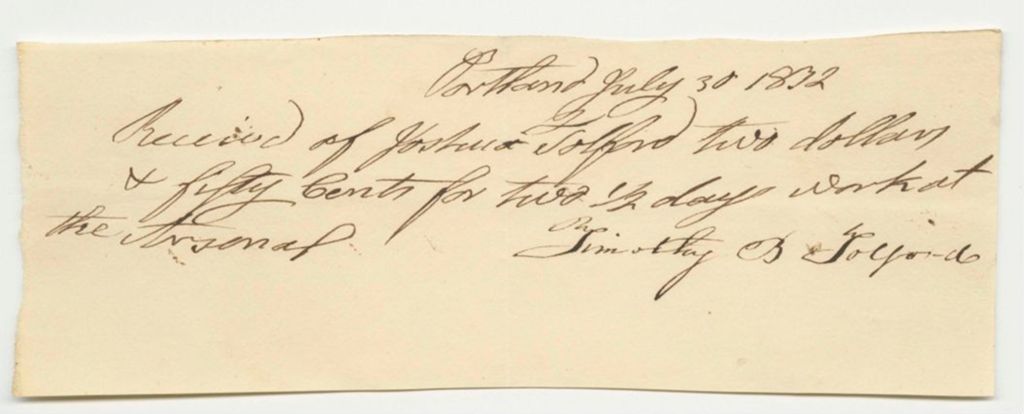 Portland July 30 1832
Received of Joshua Tolford two dollars
& fifty Cents for two 1/2 days work at
the Arsenal Timothy B Tolford